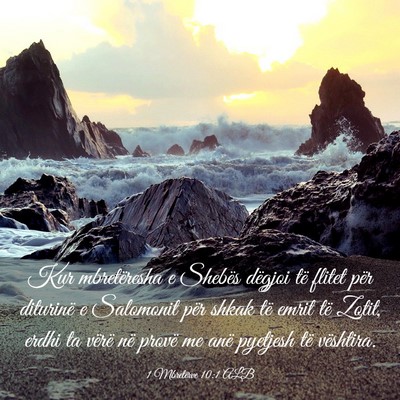 Kur mbretëresha e Shebës dëgjoi të flitet për
diturinë e Salomonit për shkak të emrit të Zotit,
erdhi ta vërë në provë me anë pyetjesh të vështira.
1 Mbretërve 10:1 ALB